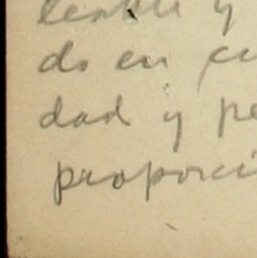 y
do en cu
dad y pe
proporci